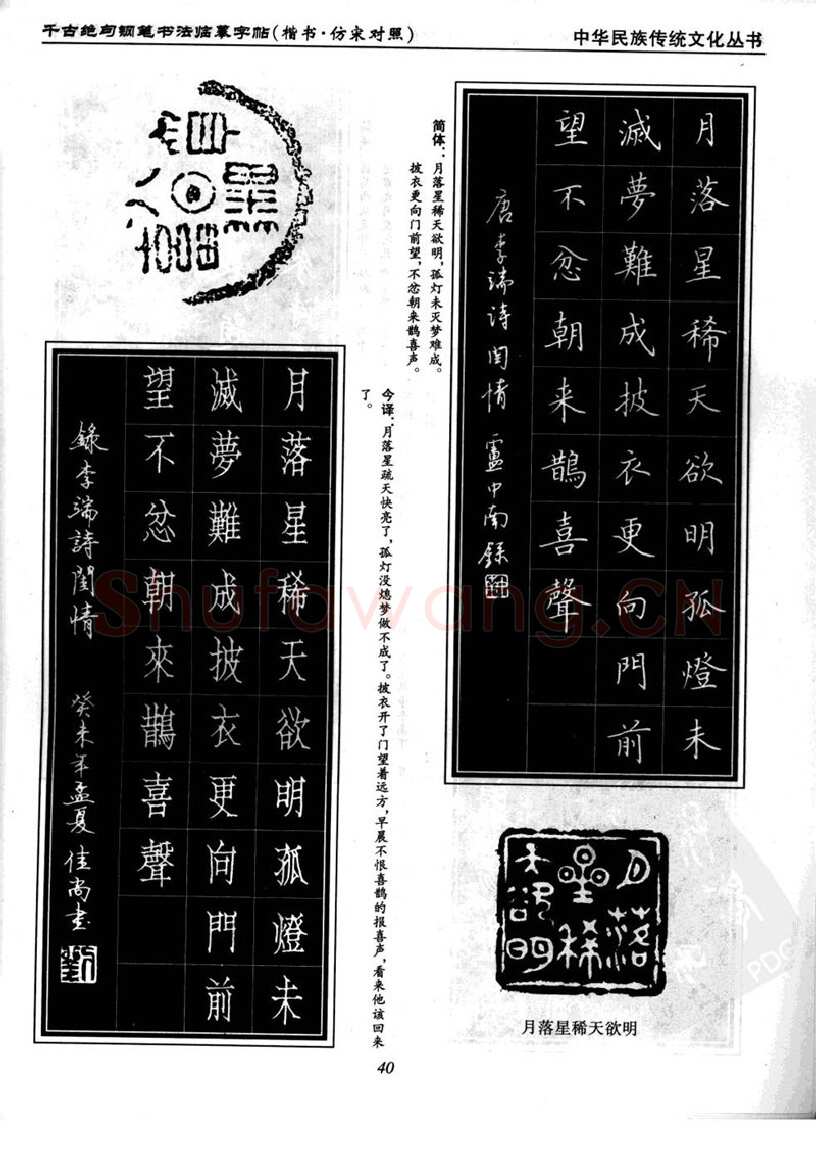 千古绝句钢笔书法临摹字帖(楷书·仿宋对照)
中华民族传统文化丛书
月落星稀天欲明孤燈未
滅夢難成披衣更向門前
望不忿朝来鵲喜聲
唐李端诗闺情 盧中南錄
简体：月落星稀天欲明，孤灯未灭梦难成。
披衣更向门前望，不忿朝来鹊喜声。
今译：月落星疏天快亮了，孤灯没熄梦做不成了。披衣开了门望着远方，早晨不恨喜鹊的报喜声，看来他该回来
了。
月落星稀天欲明孤燈未
滅夢難成披衣更向門前
望不忿朝來鵲喜聲
錄李端詩閨情 癸未年孟夏佳尚书
劉
月落星稀天欲明
月落星稀天欲明
40
Shufawang.CN
PDG